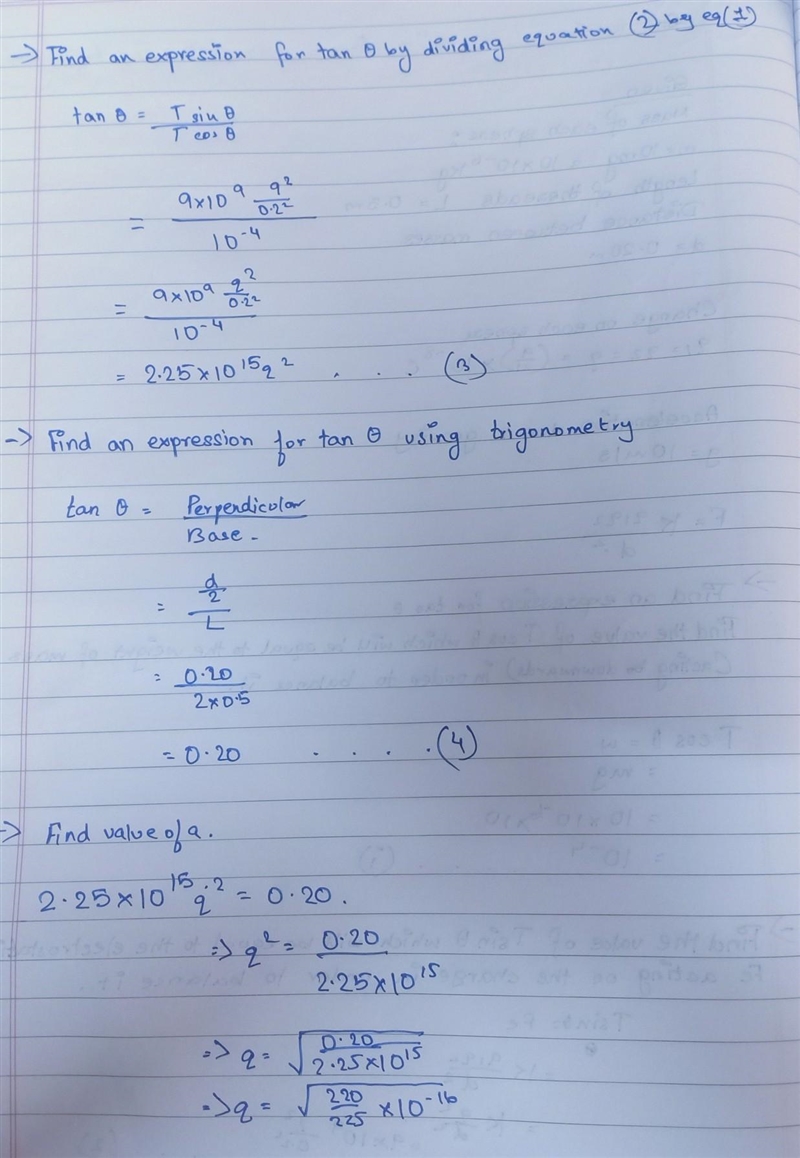 → Find an expression for tan θ by dividing equation (2) by eq(1)
tan θ = T sin θ / T cos θ
= 9×10⁹ q²/0.2² / 10⁻⁴
= 9×10⁹ q²/0.2² / 10⁻⁴
= 2.25×10¹⁵q² . . . (3)
→ Find an expression for tan θ using trigonometry
tan θ = Perpendicolar / Base -
= d/2 / L
= 0.20 / 2×0.5
= 0.20 . . . . (4)
→ Find value of q.
2.25×10¹⁵ q² = 0.20.
=> q² = 0.20 / 2.25×10¹⁵
=> q = √(0.20 / 2.25×10¹⁵)
=> q = √(220/225 ×10⁻¹⁶)